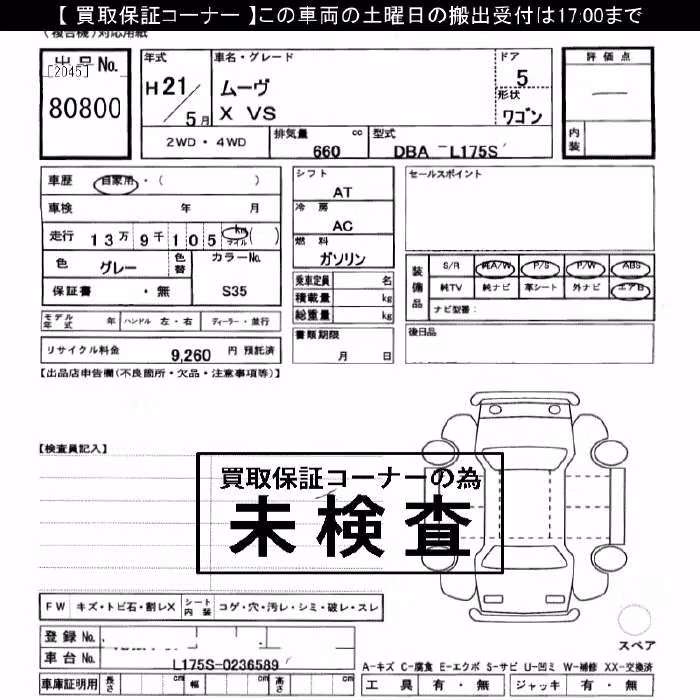 【 買取保証コーナー 】この車両の土曜日の搬出受付は17:00まで
(複合機)対応用紙
出品No.
[2045]
80800
年式 車名・グレード ドア
H 21/5月 ムーヴ 5
X VS 形状 ワゴン
2WD・4WD 排気量 cc 660 型式 DBA L175S
評価点
内装
車歴 自家用・( )
車検 年 月
走行 13万9千105 km マイル ( )
色 グレー 色替 カラーNo. S35
保証書 ・無
モデル年式 年 ハンドル 左・右 ディーラー・並行
リサイクル料金 9,260 円 預託済
シフト AT
冷房 AC
燃料 ガソリン
乗車定員 名
積載量 kg
総重量 kg
書類期限
月 日
セールスポイント
装備品 S/R 純A/W P/S P/W ABS
純TV 純ナビ 革シート 外ナビ エアB
ナビ型番:
後日品
【出品店申告欄(不良箇所・欠品・注意事項等)】
【検査員記入】
買取保証コーナーの為
未検査
FW キズ・トビ石・割レX シート内装 コゲ・穴・汚レ・シミ・破レ・スレ
登録No.
車台No. L175S-0236589
車庫証明用 長さ cm 幅 cm 高さ cm
スペア
A-キズ C-腐食 E-エクボ S-サビ U-凹ミ W-補修 XX-交換済
工具 有・無 ジャッキ 有・無